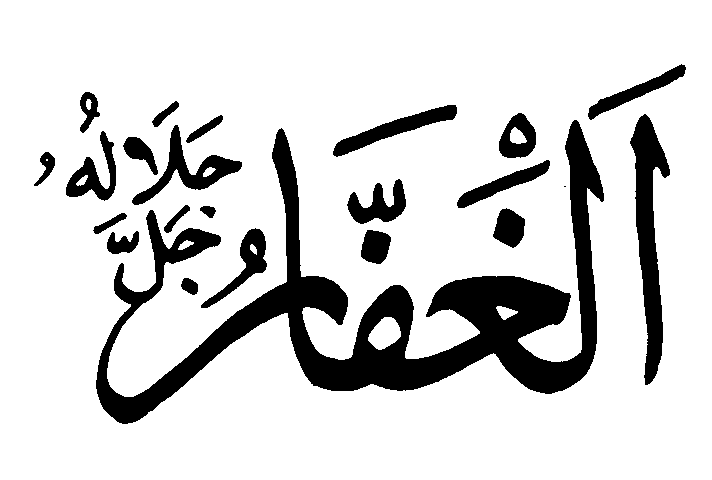 اَلْغَفَّارُ
جَلَّ جَلَالُهُ